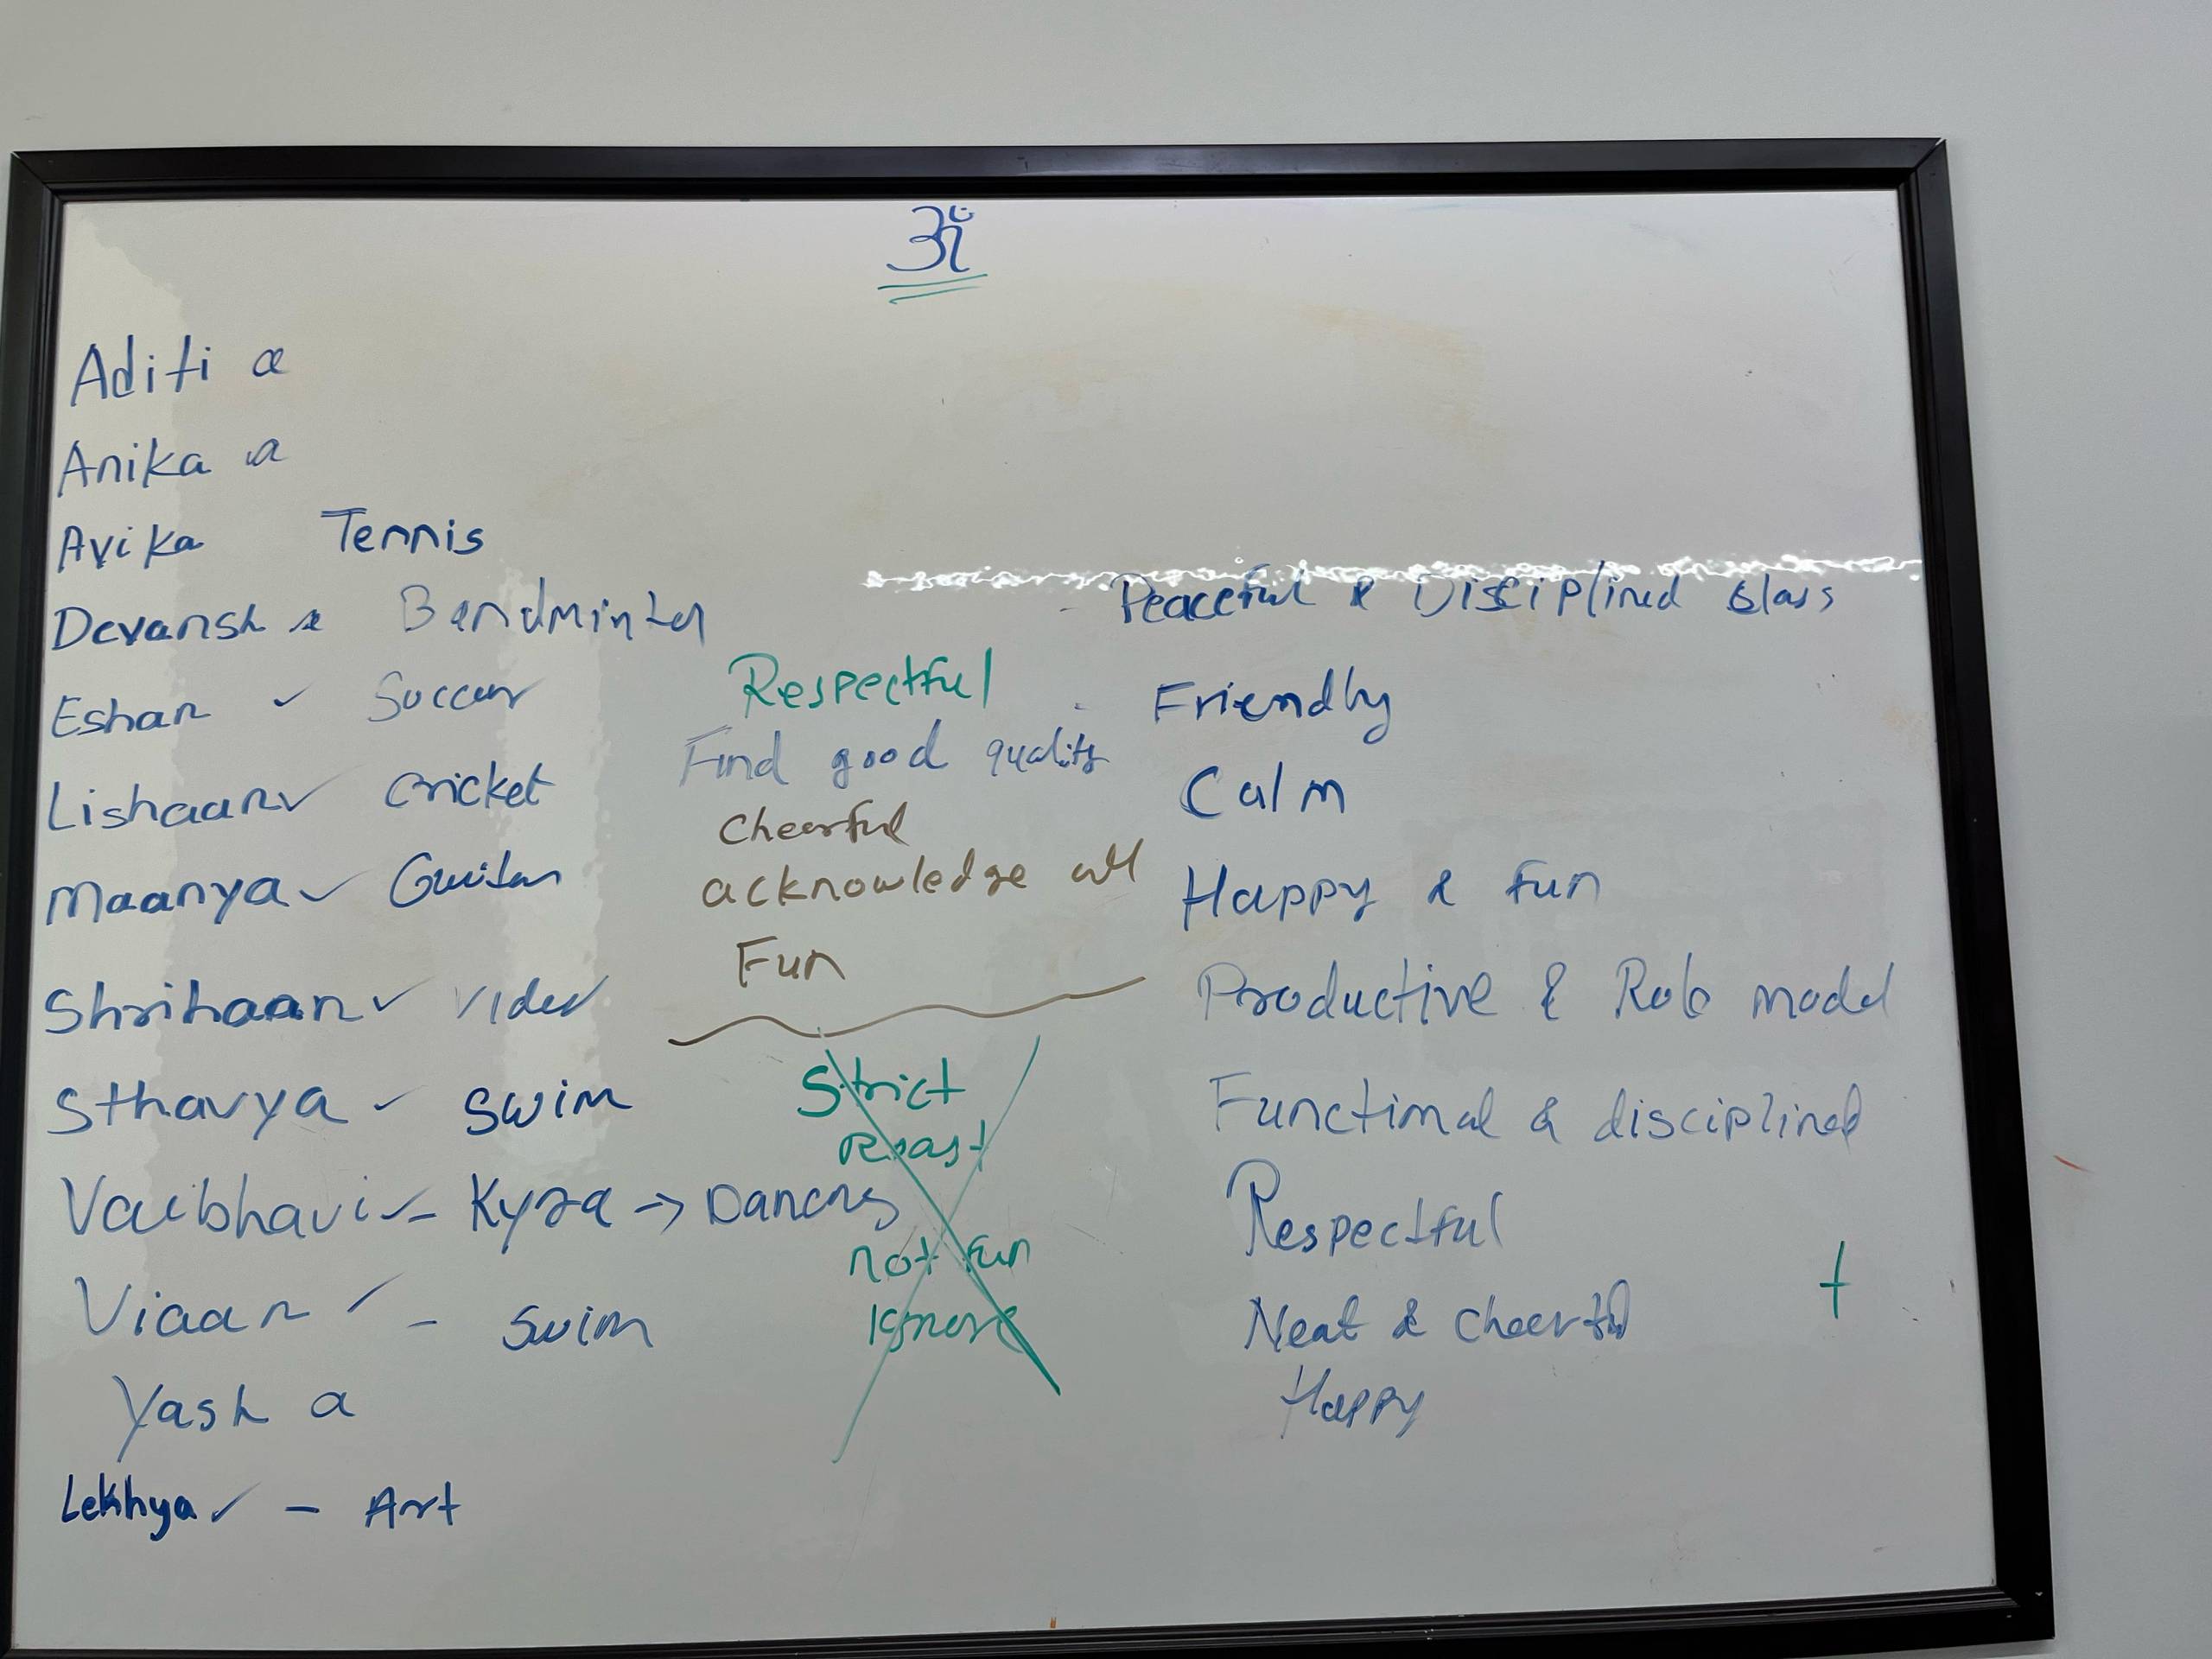 ॐ
Aditi a
Anika a
Avika Tennis
Devansh a Bandminton
Eshan ✓ Soccer
Lishaan ✓ Cricket
Maanya ✓ Guitar
Shrihaan ✓ Video
Sthavya ✓ Swim
Vaibhavi ✓ - Kyra → Dancing
Viaan ✓ - Swim
Yash a
Lekhya ✓ - Art
Respectful
Find good quality
Cheerful
acknowledge all
Fun
Strict
Roast
not fun
Ignore
- Peaceful & Disciplined Class
- Friendly
Calm
Happy & fun
Productive & Role model
Functional & disciplined
Respectful
Neat & cheerful
Happy